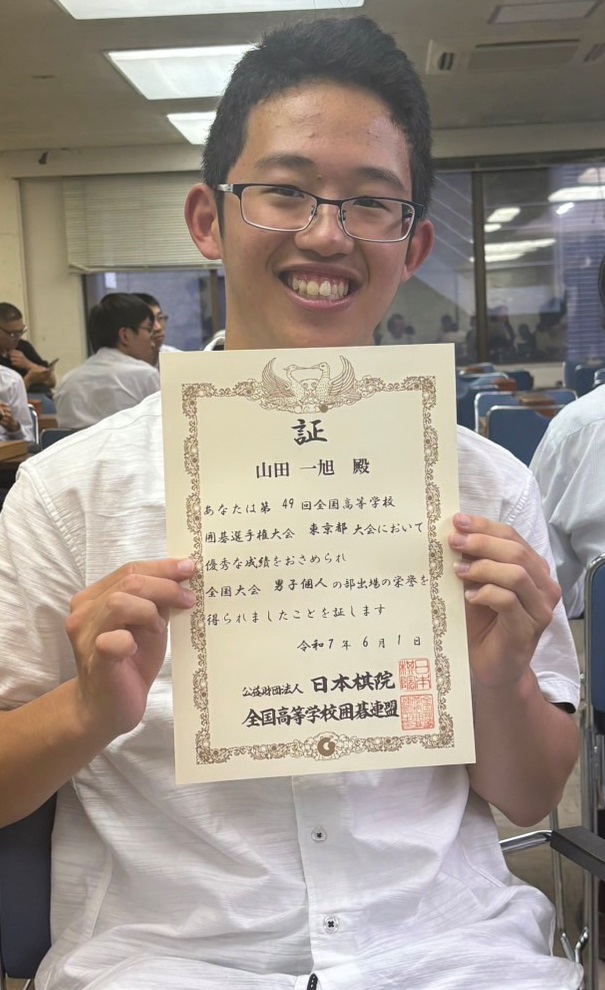 証
山田 一旭 殿
あなたは第 49 回全国高等学校
囲碁選手権大会 東京都 大会において
優秀な成績をおさめられ
全国大会 男子個人 の部出場の栄誉を
得られましたことを証します
令和 7 年 6 月 1 日
公益財団法人 日本棋院
全国高等学校囲碁連盟